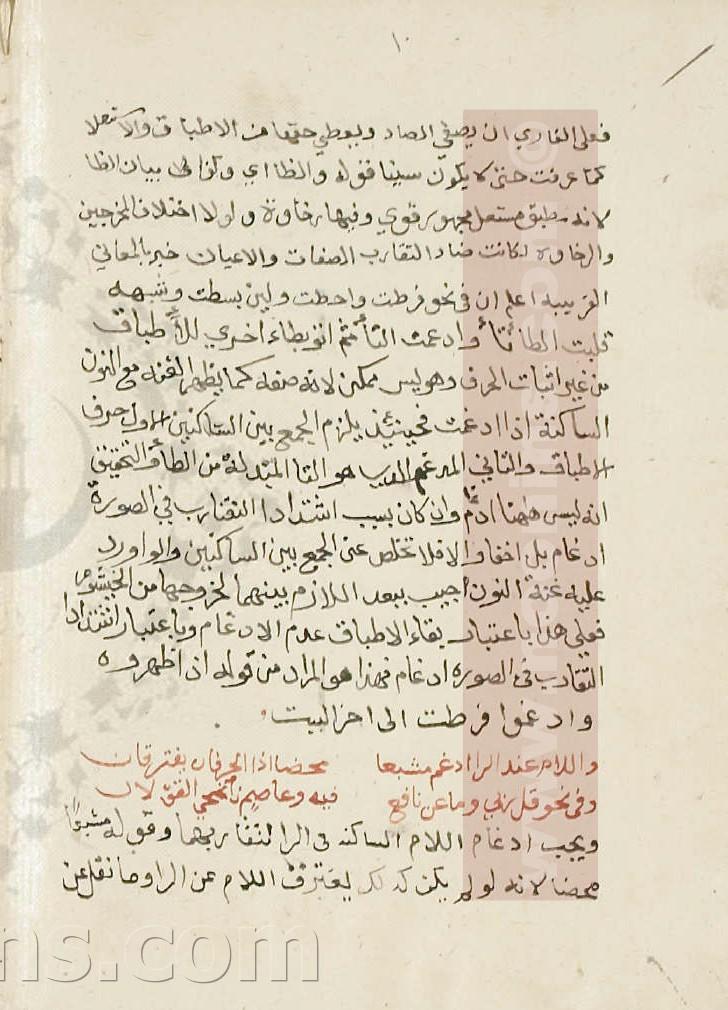 ١٠
فعلى القاري ان يصفي الصاد ويعطي حقها من الاطباق والاستعلا
كما عرفت حتى لا يكون سينا فقوله والظا اي وتوالى بيان الظا
لانه مطبق مستعل مجهور قوي وفيها رخاوة ولولا اختلاف المخرجين
والرخاوه لكانت ضاد التقارب الصفات والاعيان خبر بالمعاني
الغريبه اعلم ان في نحو فرطت واحطت ولين بسطت وشبهه
قلبت الطا تأ وادغمت التا ثم اتو بطاء اخري للأطباق
من غير اثبات الحرف وهو ليس ممكن لانه صفه كما يظهر الغنه مع النون
الساكنة اذا ادغمت فحينئذ يلزم الجمع بين الساكنين الاول حرف
الاطباق والثاني المدغم الذي هو التا المبدلة من الطأ فالتحقيق
انه ليس ههنا ادغام وان كان بسبب اشتداد التقارب في الصورة
ادغام بل اخفا والا فلا تخلص عن الجمع بين الساكنين ولو اورد
عليه غنة النون اجيب ببعد اللازم بينهما لخروجها من الخيشوم
فعلى هذا باعتبار بقاء الاطباق عدم الادغام وباعتبار اشتداد
التقارب في الصوره ادغام فهذا هو المراد من قوله اذ اظهروه
وادغموا فرطت الى اخر البيت
واللام عند الرا ادغم مشبعا محضا اذا الحرفان يفترقان
وفي نحو قل ربي وما عن نافع فيه وعاصم القولان
ويجب ادغام اللام الساكنه في الرا لتقاربهما وقوله مشبعا
محضا لانه لو لم يكن كذلك يفترق اللام عن الرا وما نقل عن
ns.com